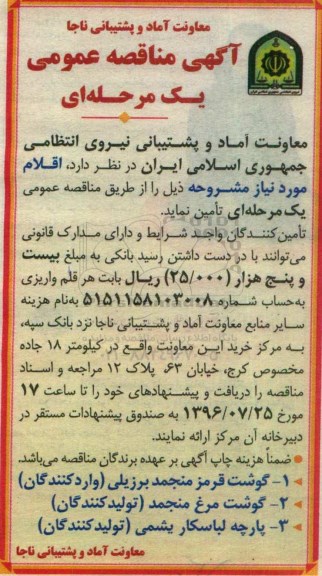 معاونت آماد و پشتیبانی ناجا
آگهی مناقصه عمومی
یک مرحله‌ای
معاونت آماد و پشتیبانی نیروی انتظامی
جمهوری اسلامی ایران در نظر دارد، اقلام
مورد نیاز مشروحه ذیل را از طریق مناقصه عمومی
یک‌مرحله‌ای تأمین نماید.
تأمین کنندگان واجد شرایط و دارای مدارک قانونی
می‌توانند با در دست داشتن رسید بانکی به مبلغ بیست
و پنج هزار (۲۵/۰۰۰) ریال بابت هر قلم واریزی
به‌حساب شماره ۵۱۵۱۱۵۸۱۰۳۰۰۸ به‌نام هزینه
سایر منابع معاونت آماد و پشتیبانی ناجا نزد بانک سپه،
به مرکز خرید این معاونت واقع در کیلومتر ۱۸ جاده
مخصوص کرج، خیابان ۶۳، پلاک ۱۲ مراجعه و اسناد
مناقصه را دریافت و پیشنهادهای خود را تا ساعت ۱۷
مورخ ۱۳۹۶/۰۷/۲۵ به صندوق پیشنهادات مستقر در
دبیرخانه آن مرکز ارائه نمایند.
ضمناً هزینه چاپ آگهی بر عهده برندگان مناقصه می‌باشد.
۱- گوشت قرمز منجمد برزیلی (واردکنندگان)
۲- گوشت مرغ منجمد (تولیدکنندگان)
۳- پارچه لباسکار یشمی (تولیدکنندگان)
معاونت آماد و پشتیبانی ناجا